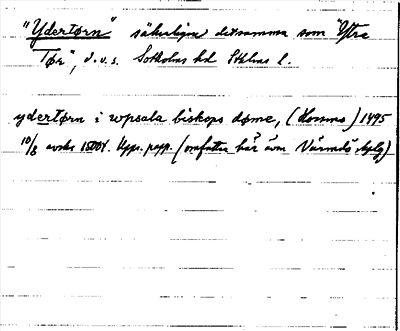 "Ydertørn" säkerligen detsamma som "Yttre
Tør", d.v.s. Sotholms hd Sthlms l.
ydertørn i wpsala biskops døme, (Homma) 1495
10/8 avskr. Upps. papp. (omfattar här även Värmdö sklg)